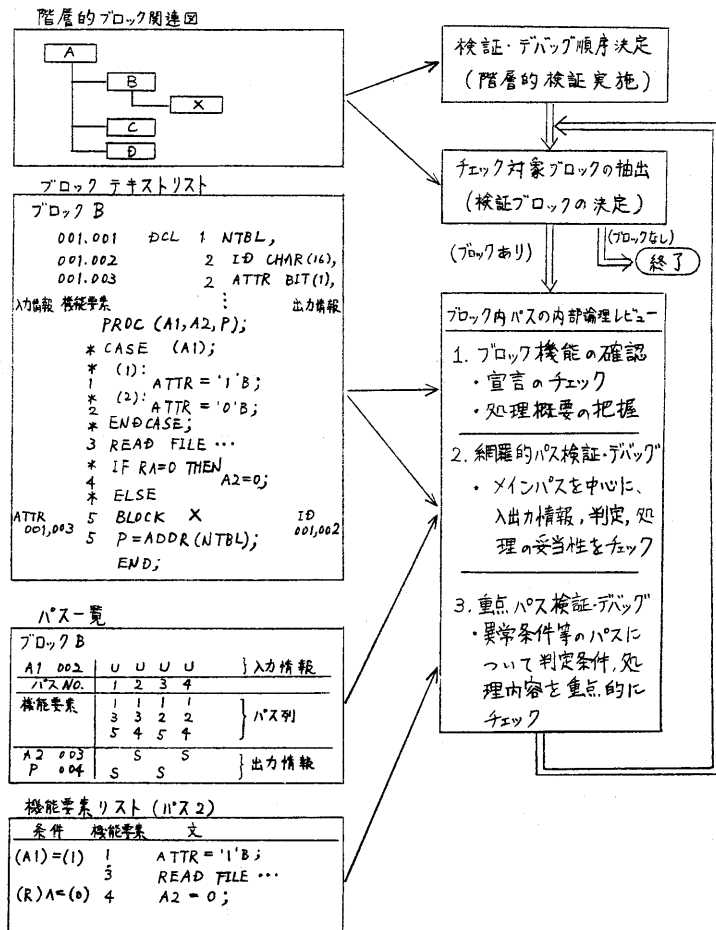 階層的ブロック関連図
A
B
X
C
D
ブロック テキストリスト
ブロック B
001.001 DCL 1 NTBL,
001.002 2 ID CHAR(16),
001.003 2 ATTR BIT(1),
入力情報 機能要素 : 出力情報
PROC (A1,A2,P);
* CASE (A1);
* (1):
1 ATTR = '1'B;
* (2):
2 ATTR = '0'B;
* ENDCASE;
3 READ FILE …
* IF RΛ=0 THEN
4 A2=0;
* ELSE
ATTR 5 BLOCK X ID
001,003 5 P=ADDR(NTBL); 001,002
END;
パス一覧
ブロック B
A1 002 U U U U }入力情報
パスNO. 1 2 3 4
機能要素 1 1 1 1
3 3 2 2 }パス列
5 4 5 4
A2 003 S S
P 004 S S }出力情報
機能要素リスト (パス2)
条件 機能要素 文
(A1)=(1) 1 ATTR = '1'B;
3 READ FILE …
(R)Λ=(0) 4 A2 = 0;
検証・デバッグ順序決定
(階層的検証実施)
チェック対象ブロックの抽出
(検証ブロックの決定)
(ブロックあり)
(ブロックなし)
終了
ブロック内パスの内部論理レビュー
1. ブロック機能の確認
・宣言のチェック
・処理概要の把握
2. 網羅的パス検証・デバッグ
・メインパスを中心に、
入出力情報,判定,処
理の妥当性をチェック
3. 重点パス検証・デバッグ
・異常条件等のパスに
ついて判定条件,処
理内容を重点的に
チェック